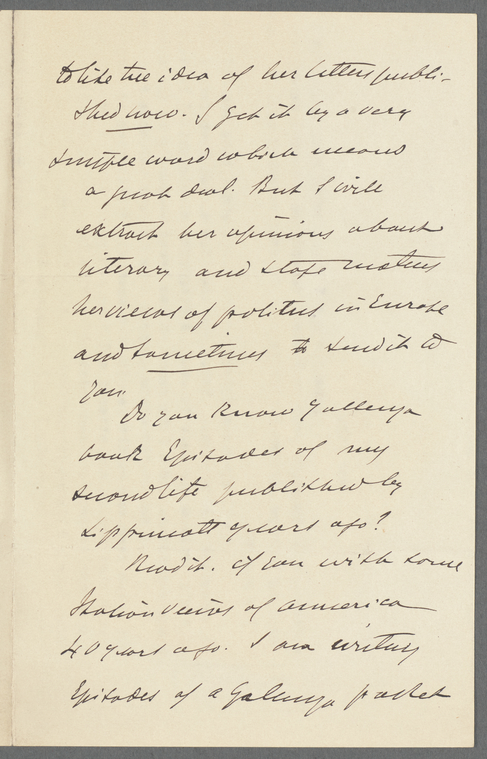 to like the idea of her letters publi-
shed now. I get it by a very
simple word which means
a great deal. But I will
extract her opinions about
literary and stage matters
her views of politics in Europe
and sometimes to send it to
you.
Do you know Gallenga
book Episodes of my
second life published by
Lippincott years ago?
Read it. if you wish some
Italian views of America
40 years ago. I am writing
Episodes of a Galenga pocket